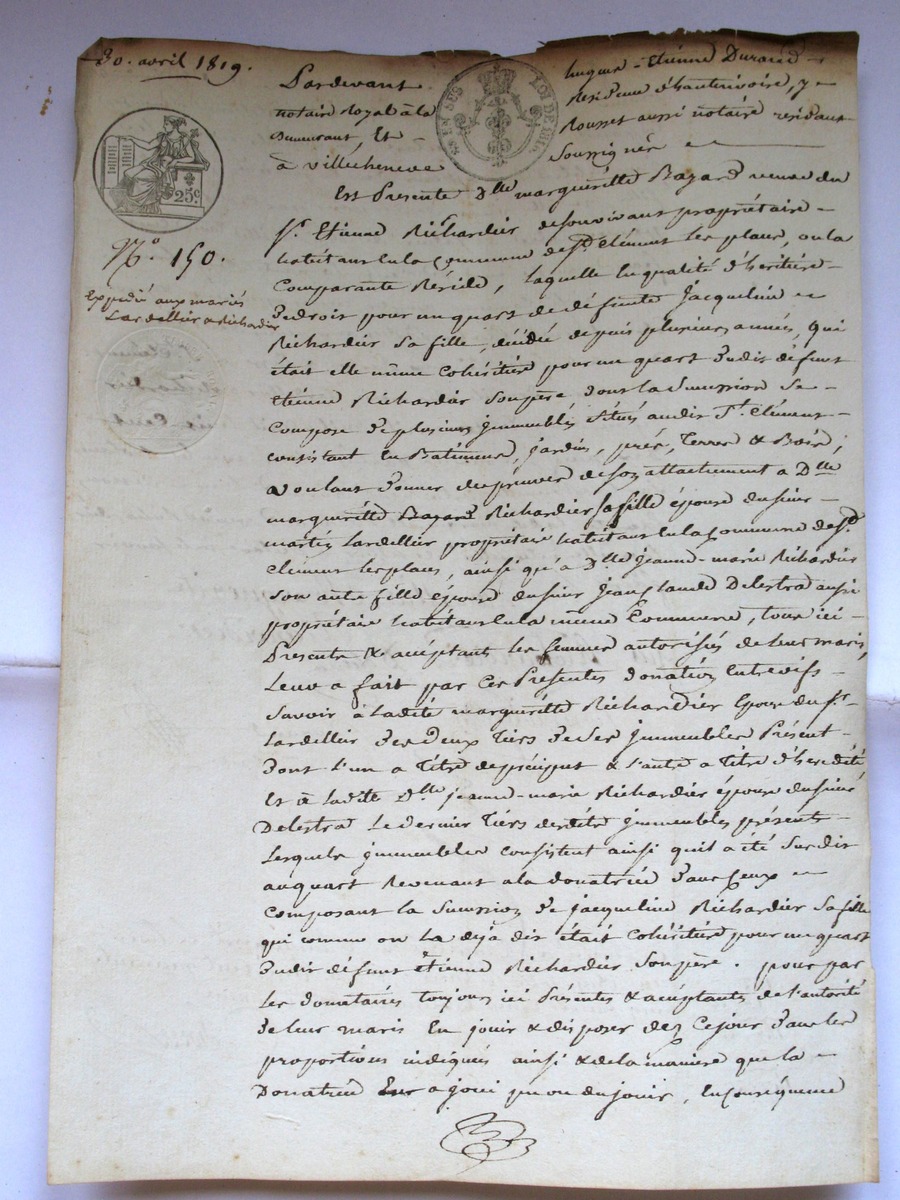 30. avril 1819.
Pardevant hugues - Etiénne Durand
notaire Royal à la Residence d'hauterivoire, y
Demeurant, Et Rousset aussi notaire residant
à Villecheneve Soussignés
Est Présente Dlle margueritte Bazard veuve du
Sr. Etienne Richardier de son vivant propriétaire
habitant en la Commune de St. Clément les places, ou la
Comparante Réside, laquelle En qualité d'héritière
de droit pour un quart de défunte Jacqueline
Richardier sa fille, décédée depuis plusieurs années, qui
était elle même cohéritiére pour un quart dudit défunt
Etiénne Richardier son père dont la Succession se
Compose de plusieurs immeubles situés audit St. Clément
consistant En Batiments, jardins, prés, Terres & Bois;
Voulant donner des preuves de son attachement a Dlle
margueritte Bazard Richardier sa fille épouse du sieur
martin Lardellier propriétaire habitant en la Commune de St
Clément les places, ainsi qu'à Dlle jeanne-marie Richardier
son autre fille épouse du sieur Jean Claude Delestra aussi
propriétaire habitant en la même Commune, tous ici
Présents & acceptant les femmes autorisées de leurs maris,
Leur a fait par ces Présentes donation Entrevifs
Savoir à ladite margueritte Richardier Epouse du Sr.
Lardellier des Deux Tiers de ses immeubles Présents
dont l'un a Titre de préciput & l'autre a Titre d'heredité
Et à ladite Dlle jeanne-marie Richardier épouse du sieur
Delestra Le dernier Tiers desdits immeubles présents
Lesquels immeubles consistent ainsi quil a été Susdit
au quart Revenant a la donatrice dans Ceux
Composant la Succession de jacqueline Richardier sa fille
qui comme on la déja dit était Cohéritiére pour un quart
dudit défunt Etienne Richardier son père. pour par
Les donataires toujours ici présentes & acceptants de l'autorité
de leur maris En jouir & disposer dez Ce jour dans les
proportions indiqués ainsi & de la maniere que la
Donatrice En a joui pu ou du jouir, En Conséquence
25c.
No. 150.
Expédié aux mariés
Lardellier & Richardier